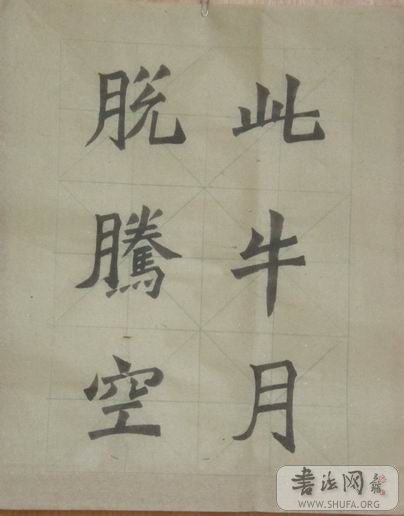 此牛月
脱騰空
书法网
WWW.SHUFA.ORG